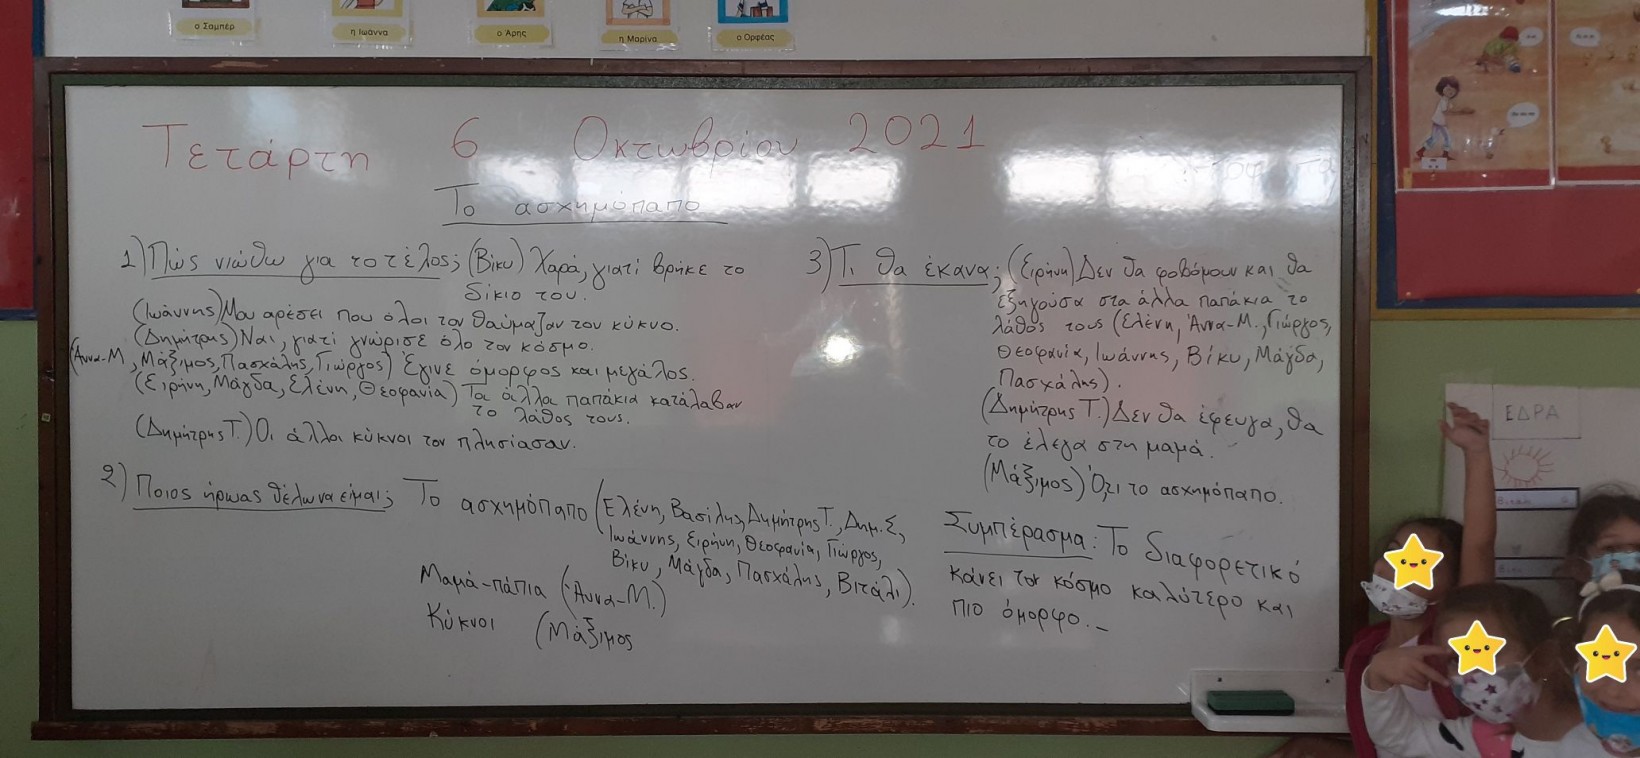 ο Σαμπέρ
η Ιωάννα
ο Άρης
η Μαρίνα
ο Ορφέας
Τετάρτη 6 Οκτωβρίου 2021
Το ασχημόπαπο
1) Πώς νιώθω για το τέλος; (Βίκυ) Χαρά, γιατί βρήκε το
δίκιο του.
(Ιωάννης) Μου αρέσει που όλοι τον θαύμαζαν τον κύκνο.
(Δημήτρης) Ναι, γιατί γνώρισε όλο τον κόσμο.
(Άννα-Μ, Μάξιμος, Πασχάλης, Γιώργος) Έγινε όμορφος και μεγάλος.
(Ειρήνη, Μάγδα, Ελένη, Θεοφανία) Τα άλλα παπάκια κατάλαβαν
το λάθος τους.
(Δημήτρης Τ.) Οι άλλοι κύκνοι τον πλησίασαν.
2) Ποιος ήρωας θέλω να είμαι; Το ασχημόπαπο (Ελένη, Βασίλης, Δημήτρης Τ., Δημ. Σ,
Ιωάννης, Ειρήνη, Θεοφανία, Γιώργος,
Βίκυ, Μάγδα, Πασχάλης, Βιτάλι).
Μαμά-πάπια (Άννα-Μ.)
Κύκνοι (Μάξιμος
3) Τι θα έκανα; (Ειρήνη) Δεν θα φοβόμουν και θα
εξηγούσα στα άλλα παπάκια το
λάθος τους (Ελένη, Άννα-Μ., Γιώργος,
Θεοφανία, Ιωάννης, Βίκυ, Μάγδα,
Πασχάλης).
(Δημήτρης Τ.) Δεν θα έφευγα, θα
το έλεγα στη μαμά.
(Μάξιμος) Ό,τι το ασχημόπαπο.
Συμπέρασμα: Το διαφορετικό
κάνει τον κόσμο καλύτερο και
πιο όμορφο._
ΕΔΡΑ